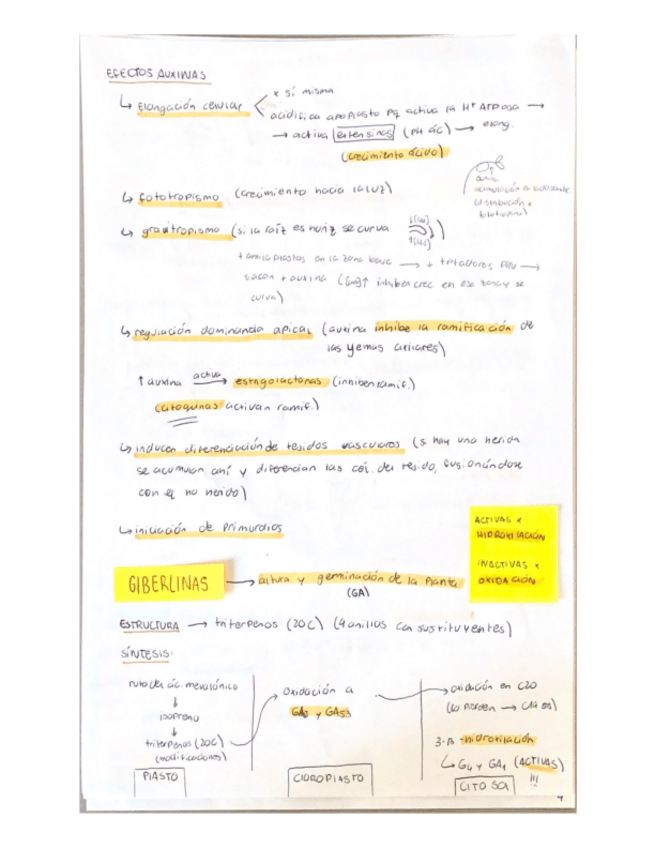 EFECTOS AUXINAS
↳ Elongación celular
x sí misma
acidifica apoplasto pq activa la H+ ATPasa →
→ activa extensinas (pH ác) → elong.
(crecimiento ácido)
↳ fototropismo (crecimiento hacia la luz)
↳ gravitropismo (si la raíz es horiz se curva
+ amiloplastos en la zona →
sacan + auxina inhiben crec en esa zona y se
curva)
↳ regulación dominancia apical (auxina inhibe la ramificación de
las yemas axilares)
↑ auxina activa → estrigolactonas (inhiben ramif.)
citoquinas activan ramif.)
↳ inducen diferenciación de tejidos vasculares (si hay una herida
se acumulan ahí y diferencian las cél. del tejido, fusionándose
con el no herido)
↳ iniciación de primordios
ACTIVAS x
HIDROXILACIÓN
INACTIVAS x
OXIDACIÓN
GIBERLINAS → altura y germinación de la planta
(GA)
ESTRUCTURA → triterpenos (20C) (4 anillos con sustituyentes)
SÍNTESIS:
ruta del ác. mevalónico
↓
isopreno
↓
triterpenos (20C)
(modificaciones)
PLASTO
→ oxidación a
y GA53
CLOROPLASTO
→ oxidación en C20
(lo pierden →
3-β-hidroxilación
↳ G4 y GA1 (ACTIVAS)
!!!
CITOSOL